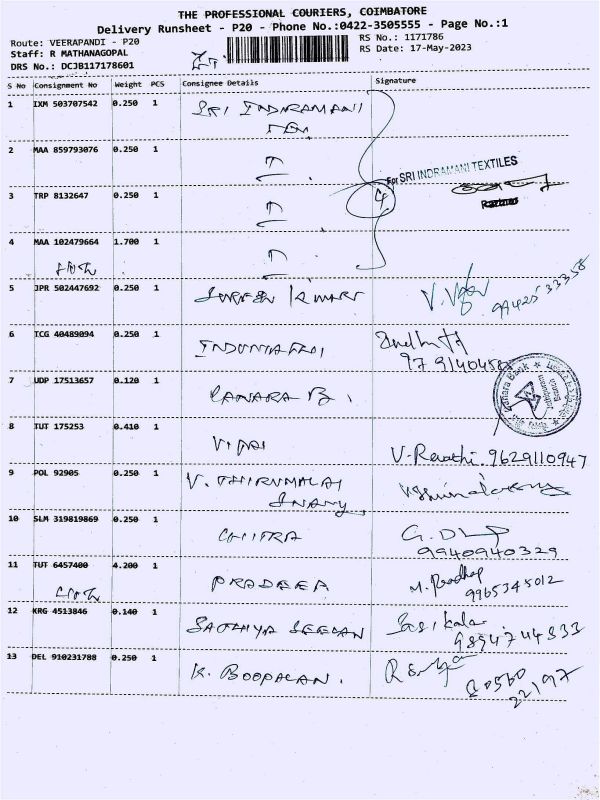 THE PROFESSIONAL COURIERS, COIMBATORE
Delivery Runsheet - P20 - Phone No.:0422-3505555 - Page No.:1
Route: VEERAPANDI - P20
RS No.: 1171786
Staff: R MATHANAGOPAL
RS Date: 17-May-2023
DRS No.: DCJB117178601
S No Consignment No Weight PCS Consignee Details Signature
1 IXM 503707542 0.250 1 SRI INDRAMANI
TEX.
2 MAA 859793076 0.250 1
For SRI INDRAMANI TEXTILES
3 TRP 8132647 0.250 1
4 MAA 102479664 1.700 1
5 JPR 502447692 0.250 1 SURESH KUMAR
6 TCG 40489094 0.250 1
7 UDP 17513657 0.120 1 CANARA B.
Canara Bank
8 TUT 175253 0.410 1 VIJAI V. Revathi. 9629110947
9 POL 92905 0.250 1 V. THIRUMALAI
SWAMY,
10 SLM 319819869 0.250 1 CHITRA
9940940329
11 TUT 6457400 4.200 1 PRADEEP M. Pradhap
9965345012
12 KRG 4513846 0.140 1 SATHYA SEELAN Sasikala
9894744333
13 DEL 910231788 0.250 1 K. BOOPALAN. Ramya